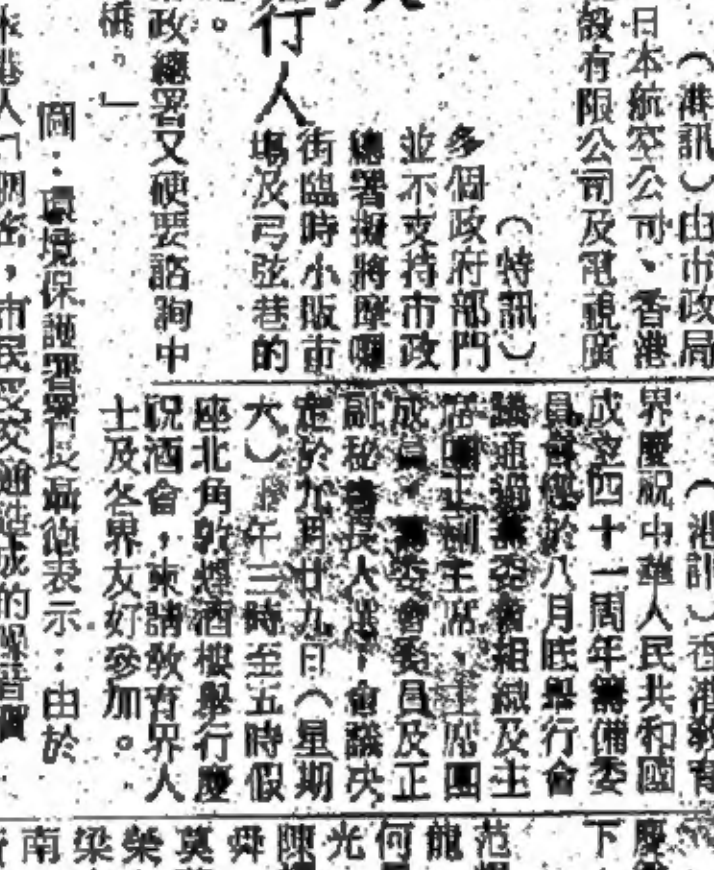 （港訊）由市政局
日本航空公司、香港
殼有限公司及電視廣
（特訊）
多個政府部門
並不支持市政
總署擬將摩囉
街臨時小販市
場及弓弦巷的
行人
政總署又硬要諮詢中
橋。」
環境保護署署長聶德表示：由於
市民受交通造成的噪音
（港訊）香港教育
界慶祝中華人民共和國
成立四十一周年籌備委
員會於八月底舉行會
議通過籌委會組織及主
席團正副主席、主席團
成員、籌委會委員及正
副秘書長人選，會議決
定於九月廿九日（星期
六）下午三時至五時假
座北角敦煌酒樓舉行慶
祝酒會，柬請教育界人
士及各界友好參加。
慶
下
范
龍
何
光
陳
舜
莫
榮
梁
南